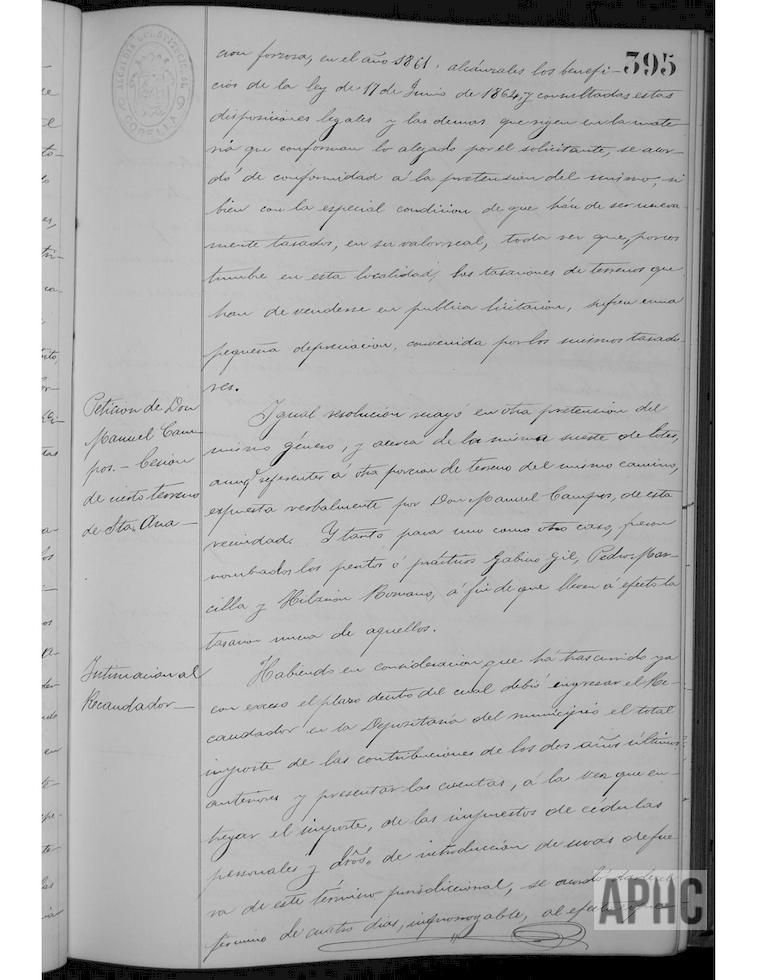 395
ALCALDIA CONSTITUCIONAL
CORELLA
cion forzosa, en el año 1861, alcánzales los benefi-
cios de la ley de 17 de Junio de 1864, y consultadas estas
disposiciones legales y las demas que rigen en la mate-
ria que conforman lo alegado por el solicitante, se acor-
dó de conformidad á la pretension del mismo; si
bien con la especial condicion de que hán de ser nueva-
mente tasados, en su valor real, toda vez que, por cos
tumbre en esta localidad, las tasaciones de terrenos que
han de venderse en publica licitacion, sufren una
pequeña depreciacion, convenida por los mismos tasado
res.
Peticion de Don
Manuel Cam-
pos. - Cesion
de cierto terreno
de Sta. Ana -
Igual resolucion recayó en otra pretension del
mismo género, y acerca de la misma suerte de lotes,
aunq.e referentes á otra porcion de terreno del mismo camino,
expuesta verbalmente por Don Manuel Campos, de esta
vecindad. Y tanto para uno como otro caso, fueron
nombrados los peritos ó prácticos Gabino Gil, Pedro Mar-
cilla y Hilarion Romano, á fin de que lleven á efecto la
tasacion nueva de aquellos.
Intimacion al
Recaudador -
Habiendo en consideracion que há trascurrido ya
con exceso el plazo dentro del cual debió ingresar el Re-
caudador en la Depositaría del municipio el total
importe de las contribuciones de los dos años últimos
anteriores y presentar las cuentas, á la vez que en-
tregar el importe, de las impuestos de cédulas
personales y dros. de introduccion de uvas de fue-
ra de este término jurisdiccional, se acordó
término de cuatro dias, improrrogable, al efecto
APHC